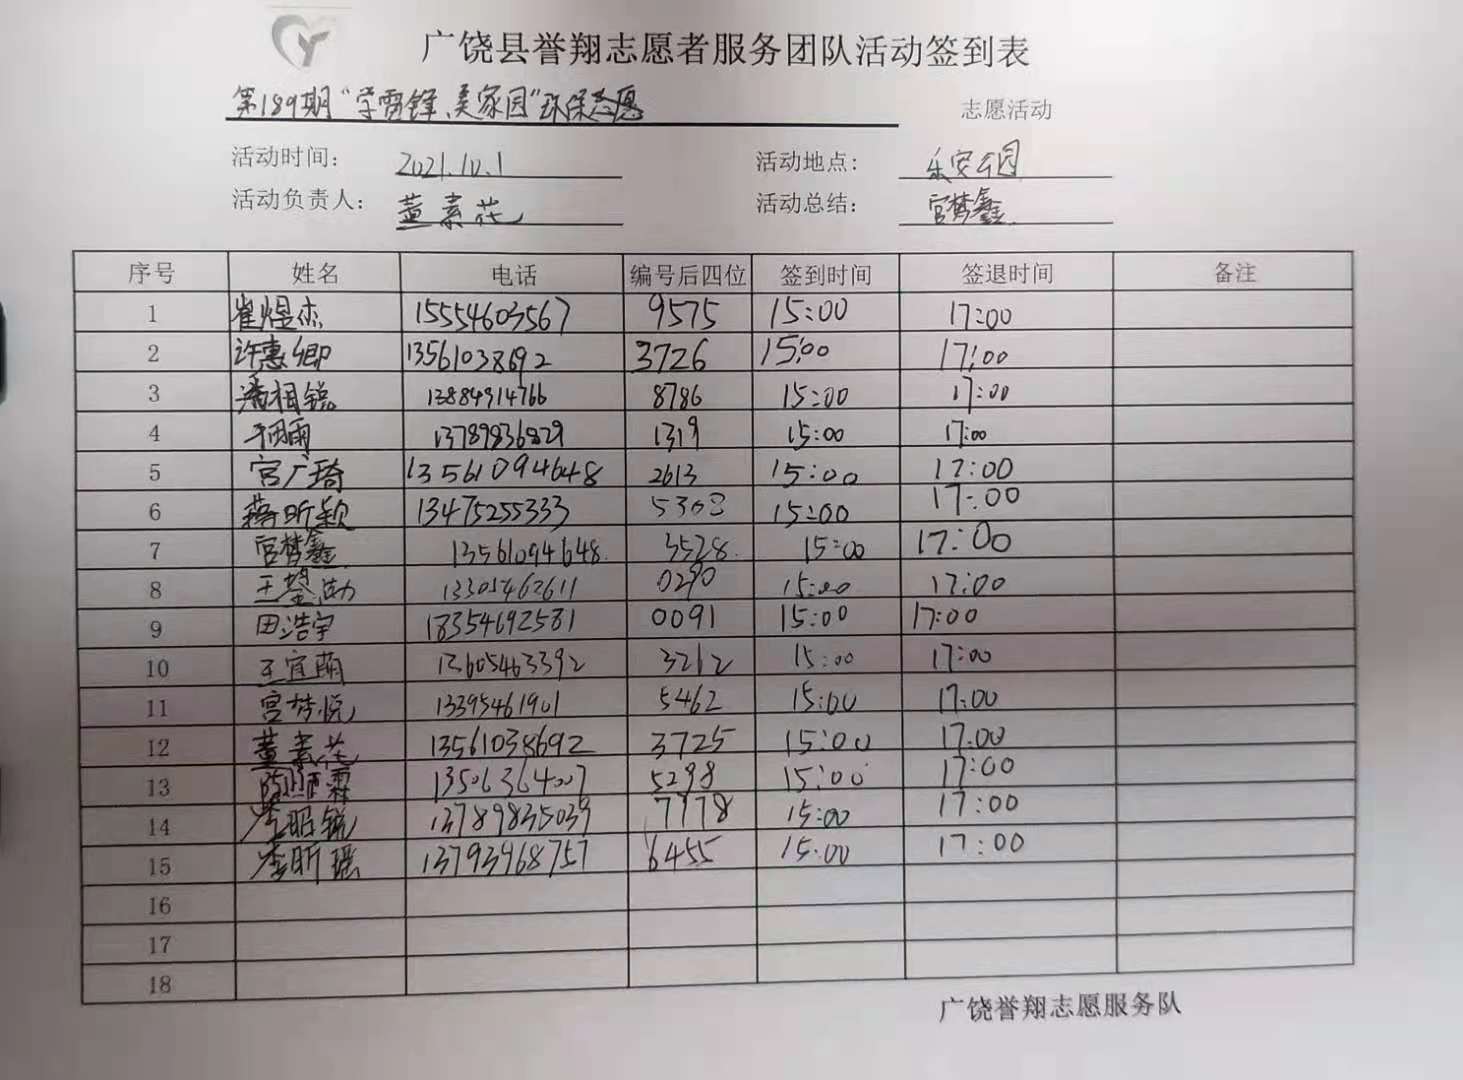 广饶县誉翔志愿者服务团队活动签到表
第189期“学雷锋、美家园”环保志愿 志愿活动
活动时间： 2021.10.1 活动地点： 乐安公园
活动负责人： 董素花 活动总结： 宫梦鑫
序号 姓名 电话 编号后四位 签到时间 签退时间 备注
1 崔煜杰 15554603567 9575 15:00 17:00
2 许惠卿 13561038692 3726 15:00 17:00
3 潘相锐 13884914766 8786 15:00 17:00
4 雨 13789836829 1319 15:00 17:00
5 宫广琦 13561094648 2613 15:00 17:00
6 蒋昕颖 13475255333 5303 15:00 17:00
7 宫梦鑫 13561094648 3528 15:00 17:00
8 王 0290 15:00 17:00
9 田浩宇 18354692581 0091 15:00 17:00
10 王宜萌 13605463392 3262 15:00 17:00
11 宫梦悦 13395461901 5462 15:00 17:00
12 董素花 13561038692 3725 15:00 17:00
13 霖 13506364007 5298 15:00 17:00
14 李昭锐 13789835039 7778 15:00 17:00
15 李昕瑶 13793968757 6455 15:00 17:00
16
17
18
广饶誉翔志愿服务队